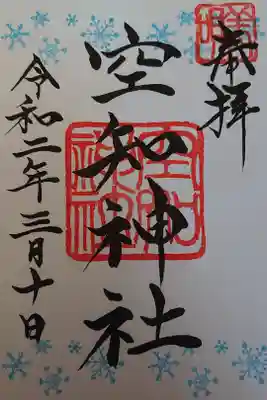 奉拝
空知神社
令和二年三月十日
空知神社